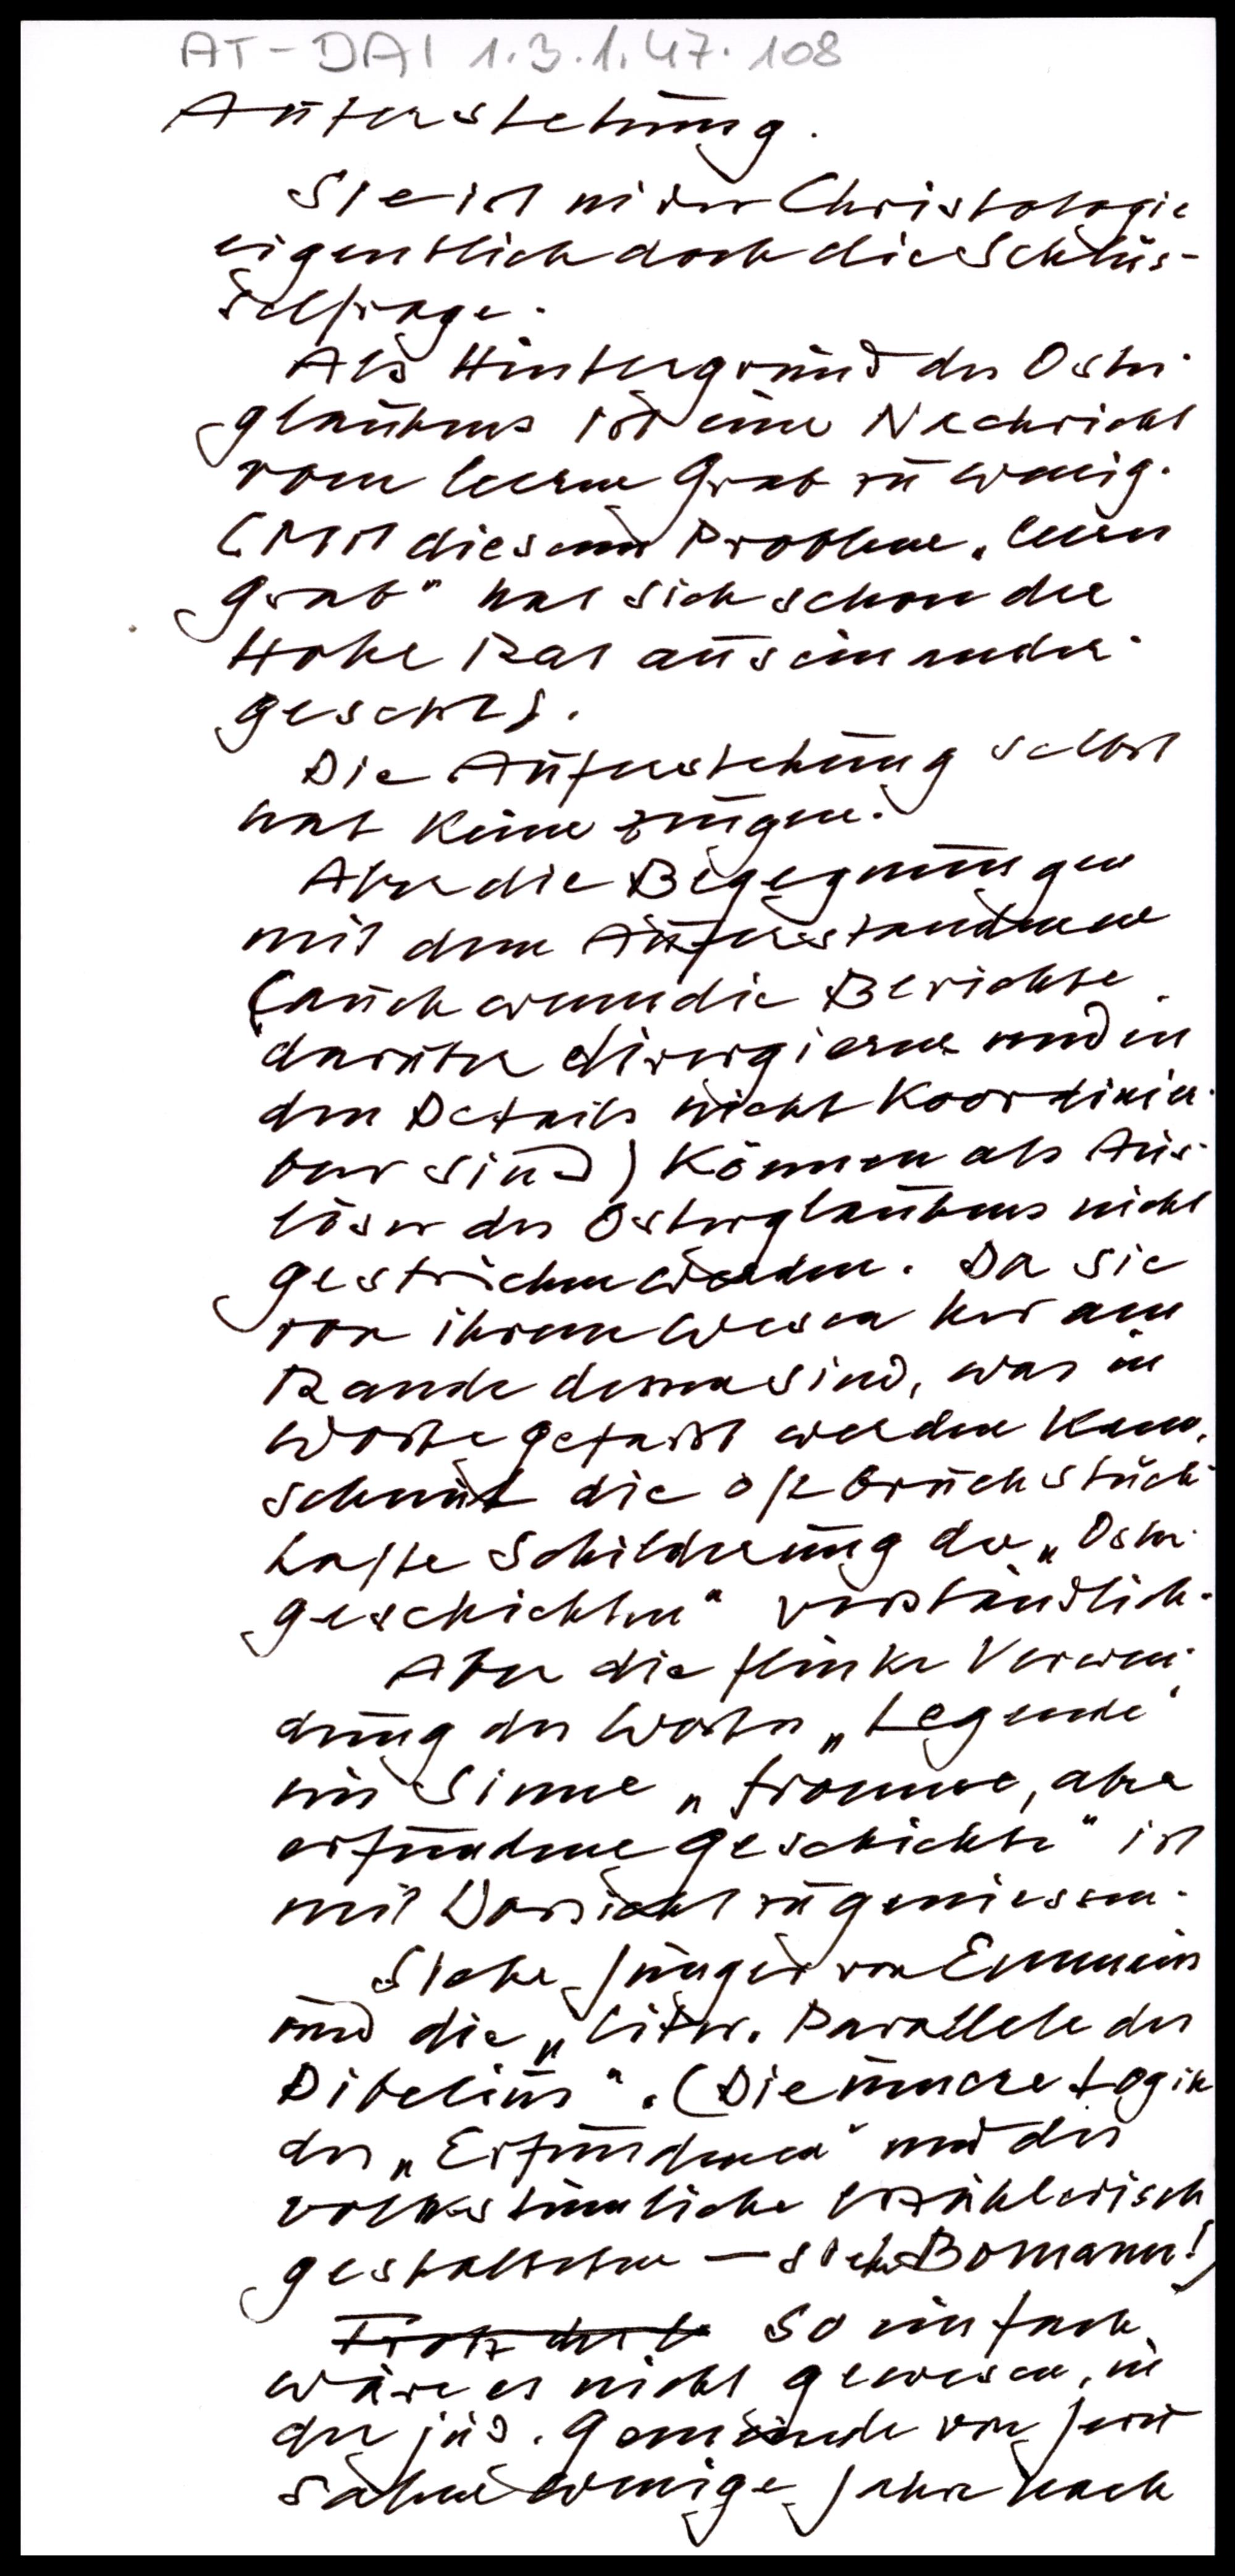 AT-DAI 1.3.1.47.108
Auferstehung.
Sie ist in der Christologie
eigentlich doch die Schlüs-
selfrage.
Als Hintergrund des Oster-
glaubens ist eine Nachricht
vom leeren Grab zu wenig.
(Mit diesem Problem "leeres
Grab" hat sich schon der
Hohe Rat auseinander-
gesetzt).
Die Auferstehung selbst
hat keine Zeugen.
Aber die Begegnungen
mit dem Auferstandenen
(auch wenn die Berichte
darüber divergieren und in
den Details nicht koordinier-
bar sind) können als Aus-
löser des Osterglaubens nicht
gestrichen werden. Da sie
von ihrem Wesen her am
Rande dessen sind, was in
Worte gefasst werden kann,
scheint die oft bruchstück-
hafte Schilderung der „Oster-
geschichten" verständlich.
Aber die flinke Verwen-
dung des Wortes „Legende"
im Sinne „fromme, aber
erfundene Geschichte" ist
mit Vorsicht zu geniessen.
Siehe Jünger von Emmaus
und die „liter. Parallele des
Dibelius". (Die innere Logik
des „Erfundenen" und des
volkstümliche erzählerisch
gestalteten — siehe Bomann!)
So einfach
wäre es nicht gewesen, in
der jüd. Gemeinde von Jeru
salem wenige Jahre nach